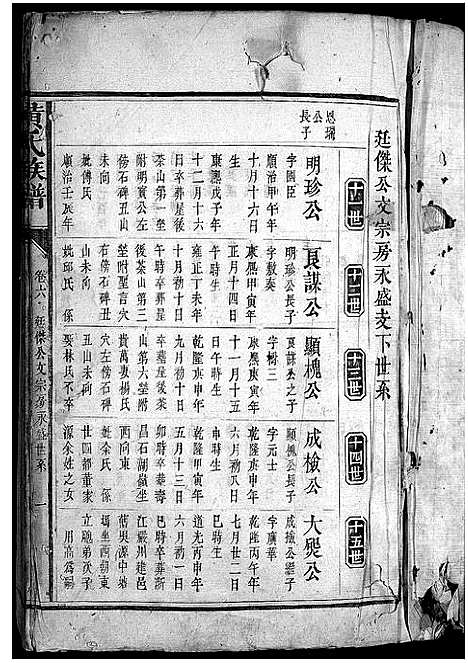 廷傑公文宗房永盛支下世系
十一世
恩瑞公長子
明珍公
字國臣
順治甲午年
十月十六日
生
康熙戊子年
十二月十六
日卒葬星後
茶山第一坐
附明寅公左
傍石碑丑山
未向
妣傅氏
順治壬辰年
十二世
良謀公
明珍公長子
字敷奏
康熙甲寅年
正月十四日
午時生
雍正丁未年
十月初十日
午時卒葬星
後茶山第三
坐附聖言穴
右傍石碑丑
山未向
妣邱氏 係
十三世
顯槐公
良謀公之子
字樹三
康熙庚寅年
十一月十五
日午時生
乾隆甲申年
九月初十日
午時卒葬後
山第六坐附
貴萬妻楊氏
穴左傍石碑
丑山未向
娶林氏不卒
十四世
成檢公
顯槐公長子
字元士
乾隆庚申年
六月初八日
申時生
乾隆甲寅年
五月十三日
卯時卒葬泰
昌石湖嶺坐
西向東
妣余氏 係
廿四都董家
源余姓之女
十五世
大熙公
成檢公繼子
字廣華
乾隆丙午年
七月廿二日
巳時生
道光丙申年
六月初一日
巳時卒葬浙
江嚴川建邑
蘭與源中塘
塢坐西朝東
立繼弟次子
黃氏族譜
卷十六
廷傑公文宗房永盛世系
一